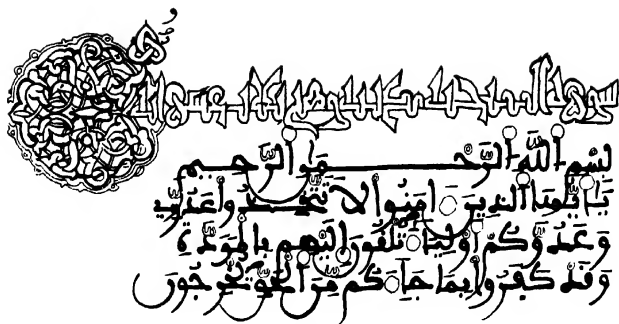 سورة الممتحنة وهي
بِسْمِ اللَّهِ الرَّحْمَنِ الرَّحِيمِ
يَا أَيُّهَا الذِينَ ءَامَنُوا لَا تَتَّخِذُوا عَدُوِّي
وَعَدُوَّكُمْ أَوْلِيَاءَ تُلْقُونَ إِلَيْهِم بِالْمَوَدَّةِ
وَقَدْ كَفَرُوا بِمَا جَاءَكُم مِّنَ الْحَقِّ يُخْرِجُونَ